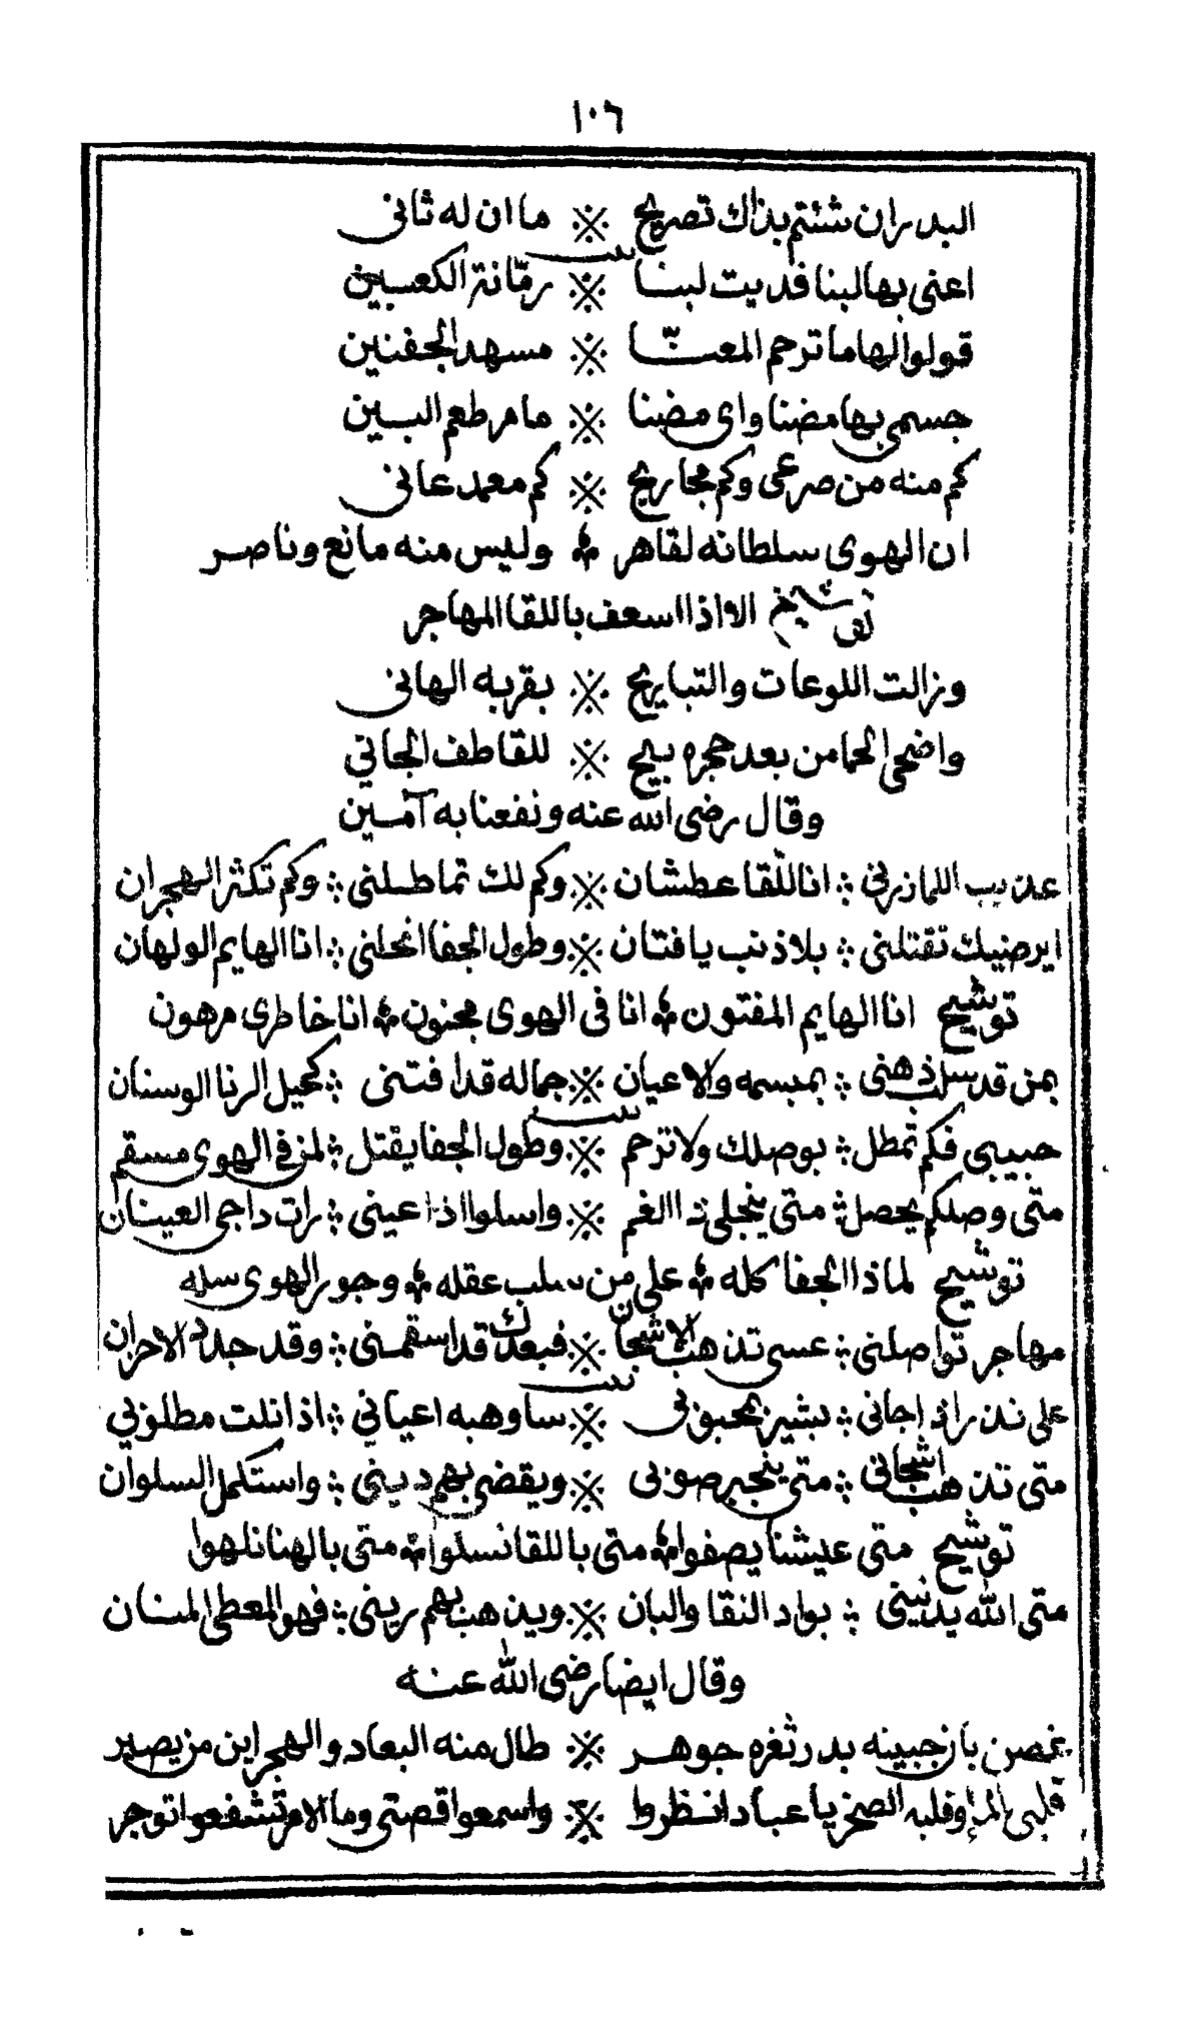 ١٠٦
البدر ان شئتم بذاك تصريح ※ ما ان له ثاني
بيت
اعني بها لبنا فديت لبنا ※ رمّانة الكعبين
قولوا لها ما ترحم المعنّا ※ مسهد الجفنين
جسمي بها مضنا واي مضنا ※ ما مر طعم البين
كم منه من صرعى وكم مجاريح ※ كم معمد عاني
ان الهوى سلطانه لقاهر ؞ وليس منه مانع وناصر
توشيح الا اذا اسعف باللقا المهاجر
وزالت اللوعات والتباريح ※ بقربه الهاني
واضحى الحما من بعد حجره بيح ※ للقاطف الجاني
وقال رضى الله عنه ونفعنا به آمين
عذيب اللما زرني ؞ انا للقا عطشان ※ وكم لك تماطلني ؞ وكم تكثر الهجران
ايرضيك تقتلني ؞ بلا ذنب يا فتان ※ وطول الجفا انحلني ؞ انا الهايم الولهان
توشيح انا الهايم المفتون ؞ انا في الهوى مجنون ؞ انا خاطري مرهون
بمن قد سلب ذهني ؞ بمبسمه والاعيان ※ جماله قد افتني ؞ كحيل الرنا الوسنان
بيت
حبيبي فكم تمطل ؞ بوصلك ولا ترحم ※ وطول الجفا يقتل ؞ لمن في الهوى مسقم
متى وصلكم يحصل ؞ متى ينجلي ذا الغم ※ واسلوا اذا عيني ؞ رات داجي العينان
توشيح لماذا الجفا كله ؞ على من سلب عقله ؞ وجور الهوى سله
مهاجر تواصلني ؞ عسى تذهب الاشجان ※ فبعدك قد اسقمني ؞ وقد جدد الاحزان
بيت
على نذر اذ اجاني ؞ بشير بمحبوبي ※ ساوهبه اعياني ؞ اذا نلت مطلوبي
متى تذهب اشجاني ؞ متى ينجبر صوبي ※ ويقضى بهم ديني ؞ واستكمل السلوان
توشيح متى عيشنا يصفوا ؞ متى باللقا نسلوا ؞ متى بالهنا نلهوا
متى الله يدنيني ؞ بواد النقا والبان ※ ويذهب بهم ريني ؞ فهو المعطي المنان
وقال ايضا رضى الله عنه
غصن بان جبينه بدر ثغره جوهر ※ طال منه البعاد والهجر اين من يصبر
قلبي الما وقلبه الصخر يا عباد انظروا ※ واسمعوا قصتي وما الامر تشفعوا توجر